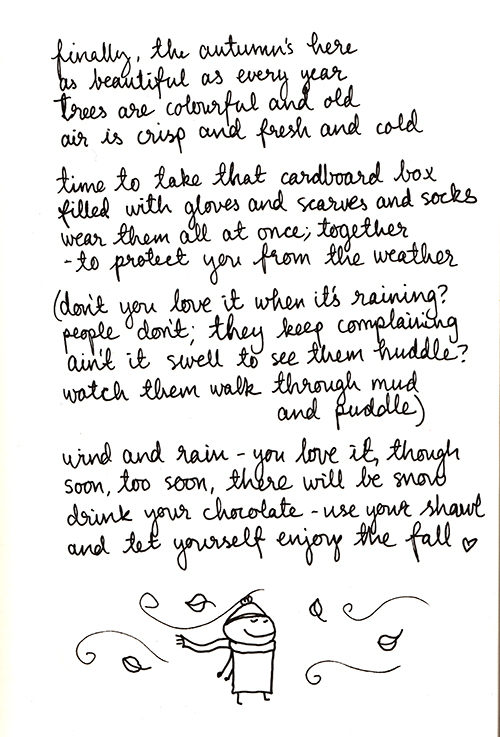 finally, the autumn's here
as beautiful as every year
trees are colourful and old
air is crisp and fresh and cold
time to take that cardboard box
filled with gloves and scarves and socks
wear them all at once; together
- to protect you from the weather
(don't you love it when it's raining?
people don't; they keep complaining
ain't it swell to see them huddle?
watch them walk through mud
and puddle)
wind and rain - you love it, though
soon, too soon, there will be snow
drink your chocolate - use your shawl
and let yourself enjoy the fall ♡